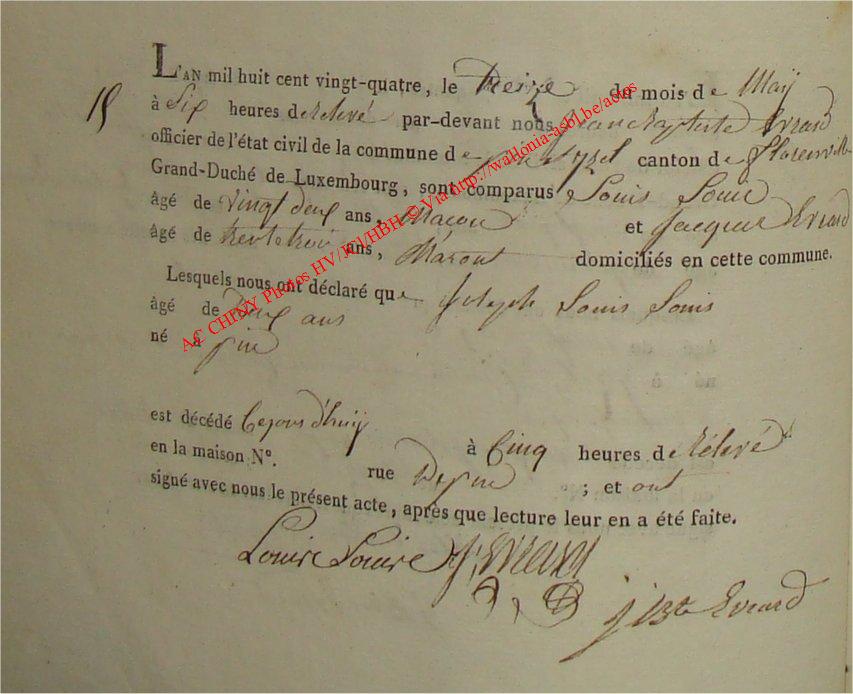 L'AN mil huit cent vingt-quatre, le treize du mois de Maÿ
15
à Six heures de relevé par-devant nous Jean Baptiste Evrard
officier de l'état civil de la commune de canton de florenville
Grand-Duché de Luxembourg, sont comparus Louis
âgé de vingt deux ans, Macon et Jacque Evrard
âgé de trente trois ans, domiciliés en cette commune.
Lesquels nous ont déclaré que Joseph Louis
âgé de deux ans
né à
est décédé Cejourd'huÿ à Cinq heures de relevé
en la maison N°. rue ; et ont
signé avec nous le présent acte, après que lecture leur en a été faite.
J Evrard
J Bte Evrard
AC CHINY Photos HV/JCl/HBH © Via http://wallonia-asbl.be/actes